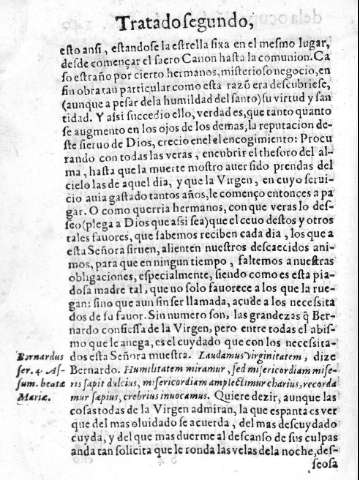 Tratado segundo,
esto ansi, estandose la estrella fixa en el mesmo lugar,
desde começar el sacro Canon hasta la comunion. Ca
so estraño por cierto hermanos, misterioso negocio, en
fin obra tan particular como esta razõ era descubriese,
(aunque a pesar de la humildad del santo) su virtud y san
tidad. Y assi succedio ello, verdad es, que tanto quanto
se augmento en los ojos de los demas, la reputacion de-
ste sieruo de Dios, crecio en el el encogimiento: Procu
rando con todas las veras, encubrir el thesoro del al-
ma, hasta que la muerte mostro auer sido prendas del
cielo las de aquel dia, y que la Virgen, en cuyo serui-
cio auia gastado tantos años, le començo entonces a pa
gar. O como querria hermanos, con que veras lo des-
seo (plega a Dios que assi sea) que el ceuo destos y otros
tales fauores, que sabemos reciben cada dia, los que a
esta Señora siruen, alienten nuestros descaecidos ani-
mos, para que en ningun tiempo, faltemos a nuestras
obligaciones, especialmente, siendo como es esta pia-
dosa madre tal, que no solo fauorece a los que la rue-
gan: sino que aun sin ser llamada, acude a los necesita
dos de su fauor. Sin numero son, las grandezas q̃ Ber-
nardo confiessa de la Virgen, pero entre todas el abis-
mo que le anega, es el cuydado que con los necesita-
dos esta Señora muestra. Laudamus virginitatem, dize
Bernardo. Humilitatem miramur, sed misericordiam mise-
ris sapit dulcius, misericordiam amplectimur charius, recorda
mur sæpius, crebrius inuocamus. Quiere dezir, aunque las
cosas todas de la Virgen admiran, la que espanta es ver
que del mas oluidado se acuerda, del mas descuydado
cuyda, y del que mas duerme al descanso de sus culpas
anda tan solicita que le ronda las velas de la noche, des-
seosa
Bernardus
ser. 4. As-
sum. beatæ
Mariæ.